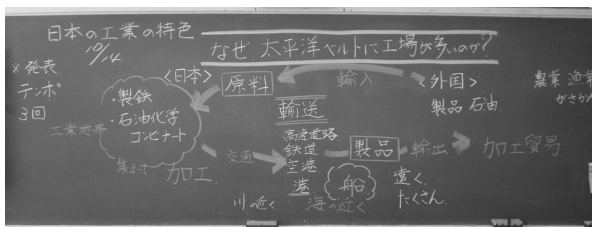 日本の工業の特色
10/14
なぜ 太平洋ベルトに工場が多いのか?
×発表
テンポ
3回
<日本>
原料
輸入
<外国>
製品 石油
農業 漁業
がさかん
・製鉄
・石油化学
コンビナート
工業地帯
集まって
加工
交通
輸送
高速道路
鉄道
空港
港
製品
輸出
加工貿易
船
遠く
たくさん
川の近く
海の近く